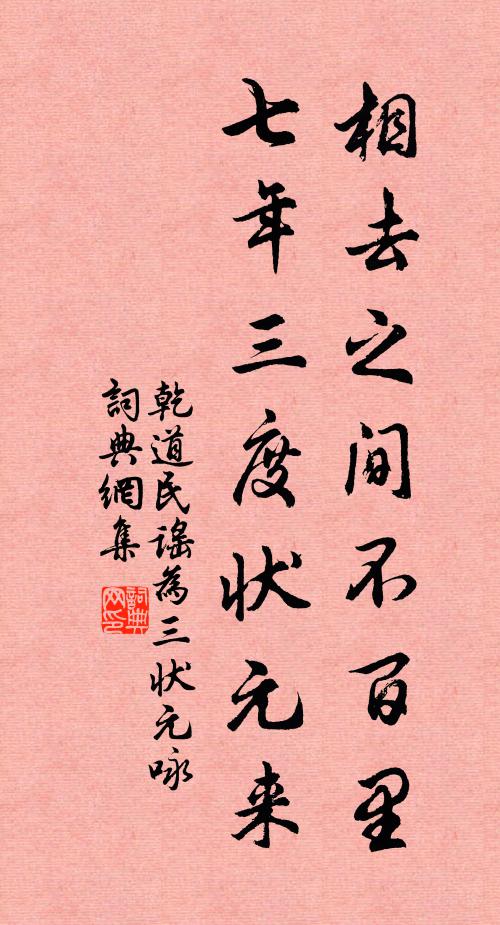 相去之间不百里
七年三度状元来
乾道民謠為三状元咏
詞典網集
詞典网印